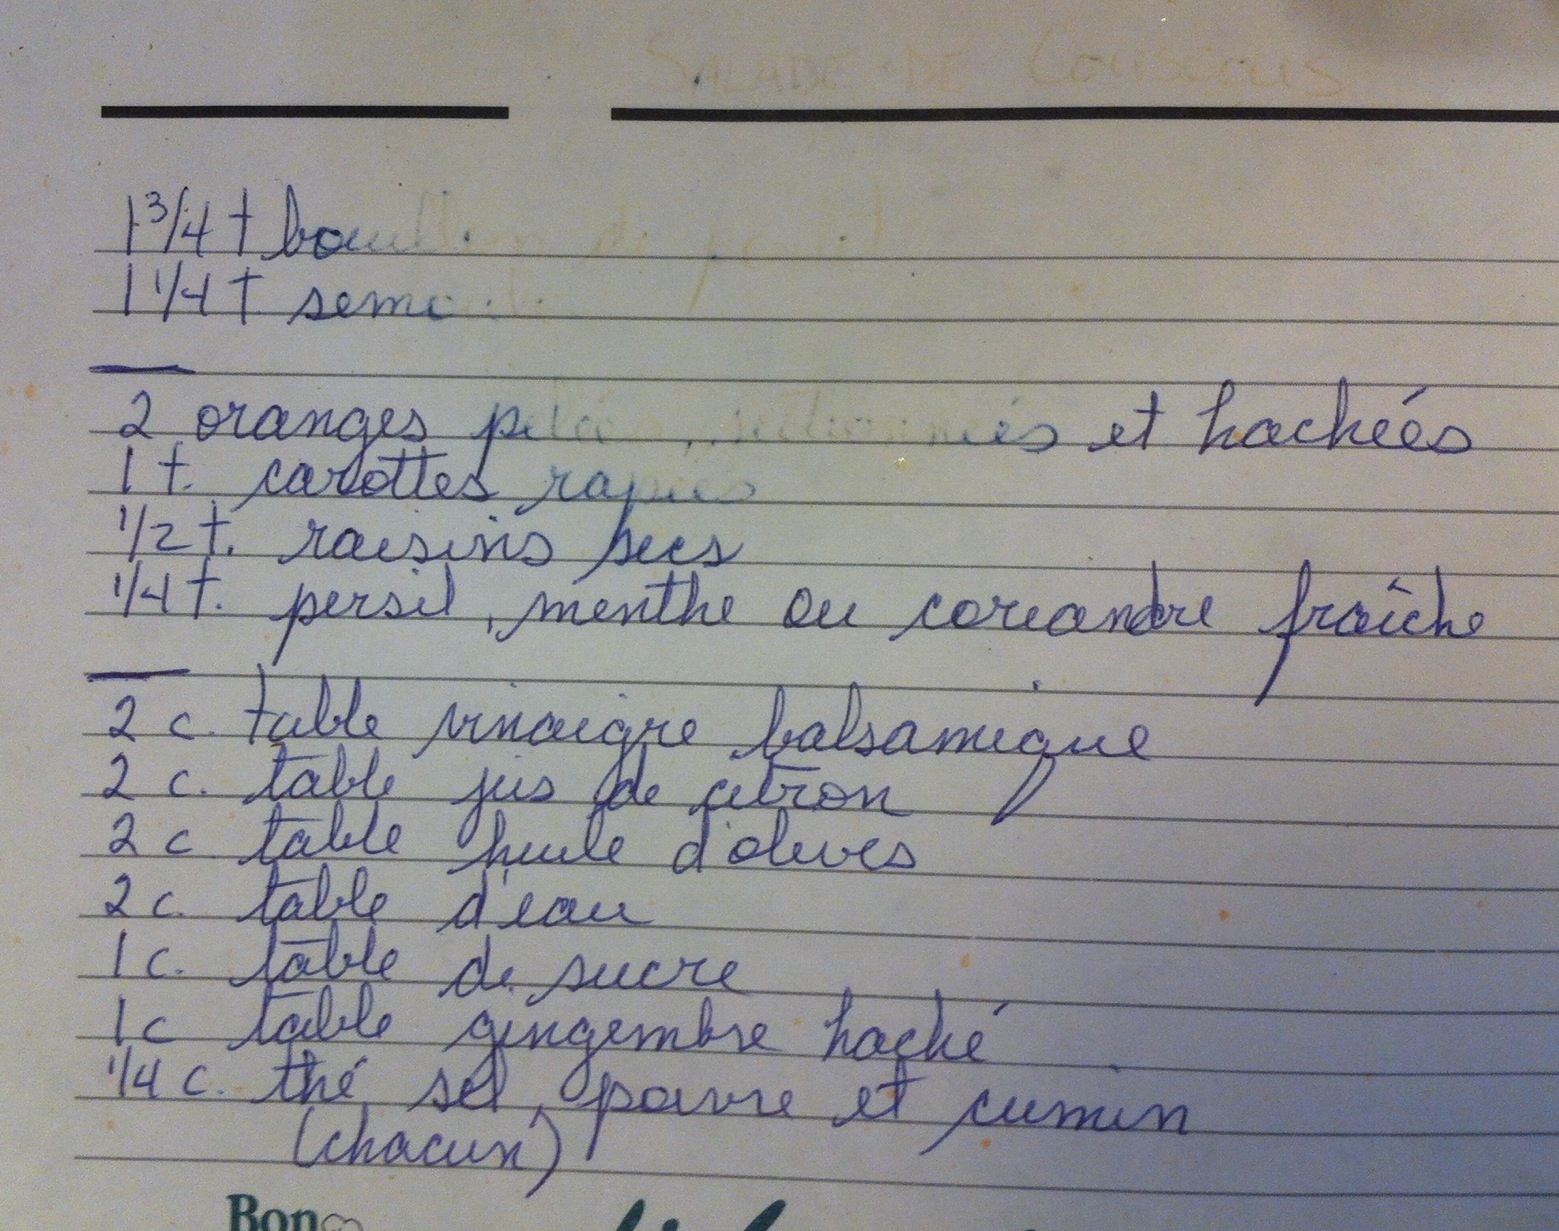 SALADE DE COUSCOUS
1 3/4 t bouillon de poulet
1 1/4 t semoule
2 oranges pelées, sectionnées et hachées
1 t. carottes rapées
1/2 t. raisins secs
1/4 t. persil, menthe ou coriandre fraîche
2 c. table vinaigre balsamique
2 c. table jus de citron
2 c. table huile d'olives
2 c. table d'eau
1 c. table de sucre
1 c table gingembre haché
1/4 c. thé sel, poivre et cumin
(chacun)
Bon